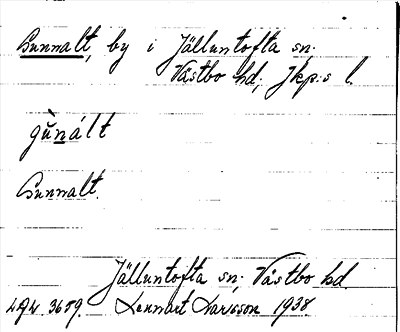 Gunnalt, by i Jälluntofta sn.
Västbo hd, Jkp:s l.
gùnált
Gunnalt.
Jälluntofta sn, Västbo hd.
Lennart Larsson 1938